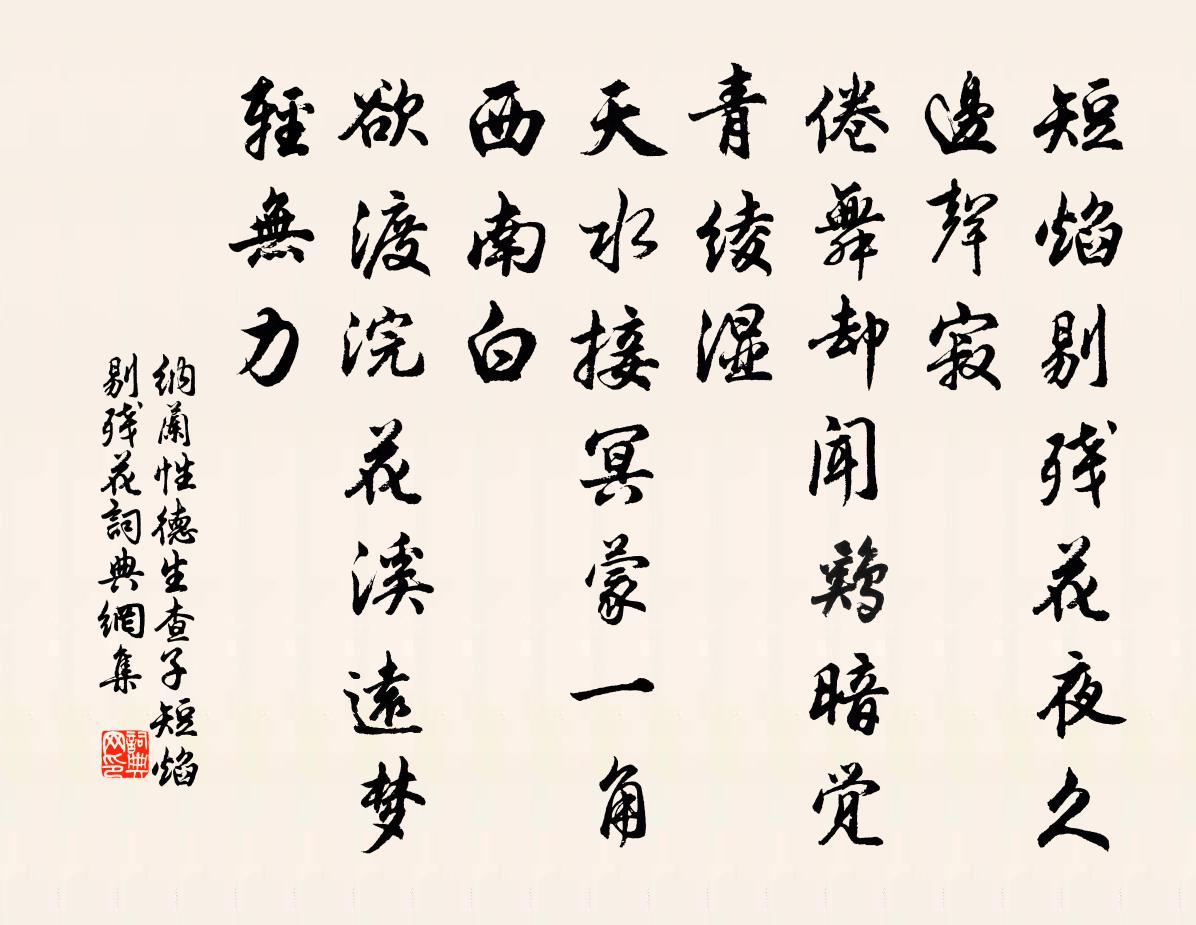 短焰剔残花夜久
邊聲寂
倦舞却闻鷄暗觉
青绫湿
天水接冥蒙一角
西南白
欲渡浣花溪遠梦
輕無力
纳蘭性德生查子短焰
剔残花詞典網集
詞典网印